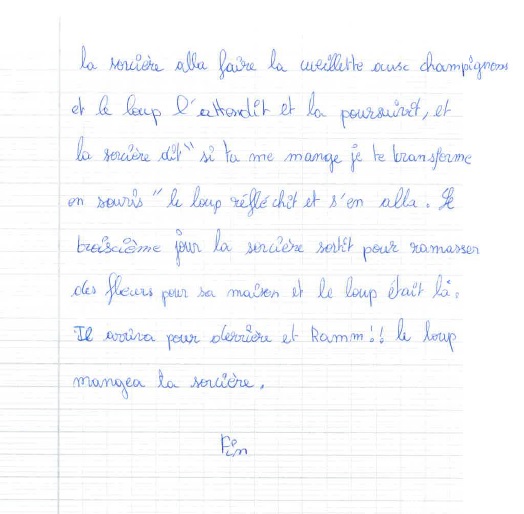 la sorcière alla faire la cueillette aux champignons
et le loup l'attendit et la poursuivit, et
la sorcière dit " si tu me mange je te transforme
en souris " le loup réfléchit et s'en alla. Le
troisième jour la sorcière sortit pour ramasser
des fleurs pour sa maison et le loup était là.
Il arriva pour derrière et Ramm!! le loup
mangea la sorcière.
Fin